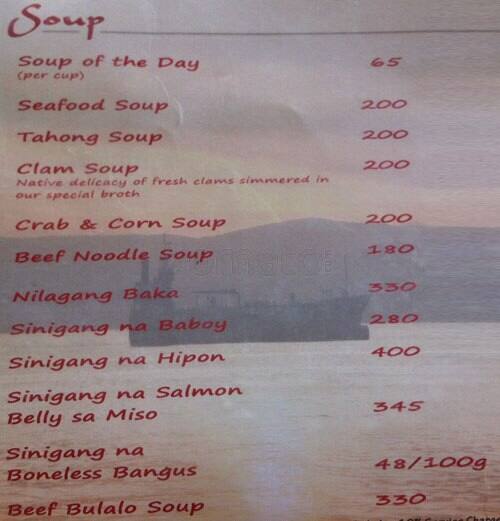 Soup
Soup of the Day 65
(per cup)
Seafood Soup 200
Tahong Soup 200
Clam Soup 200
Native delicacy of fresh clams simmered in
our special broth
Crab & Corn Soup 200
Beef Noodle Soup 180
zomato
Nilagang Baka 330
Sinigang na Baboy 280
Sinigang na Hipon 400
Sinigang na Salmon
Belly sa Miso 345
Sinigang na
Boneless Bangus 48/100g
Beef Bulalo Soup 330